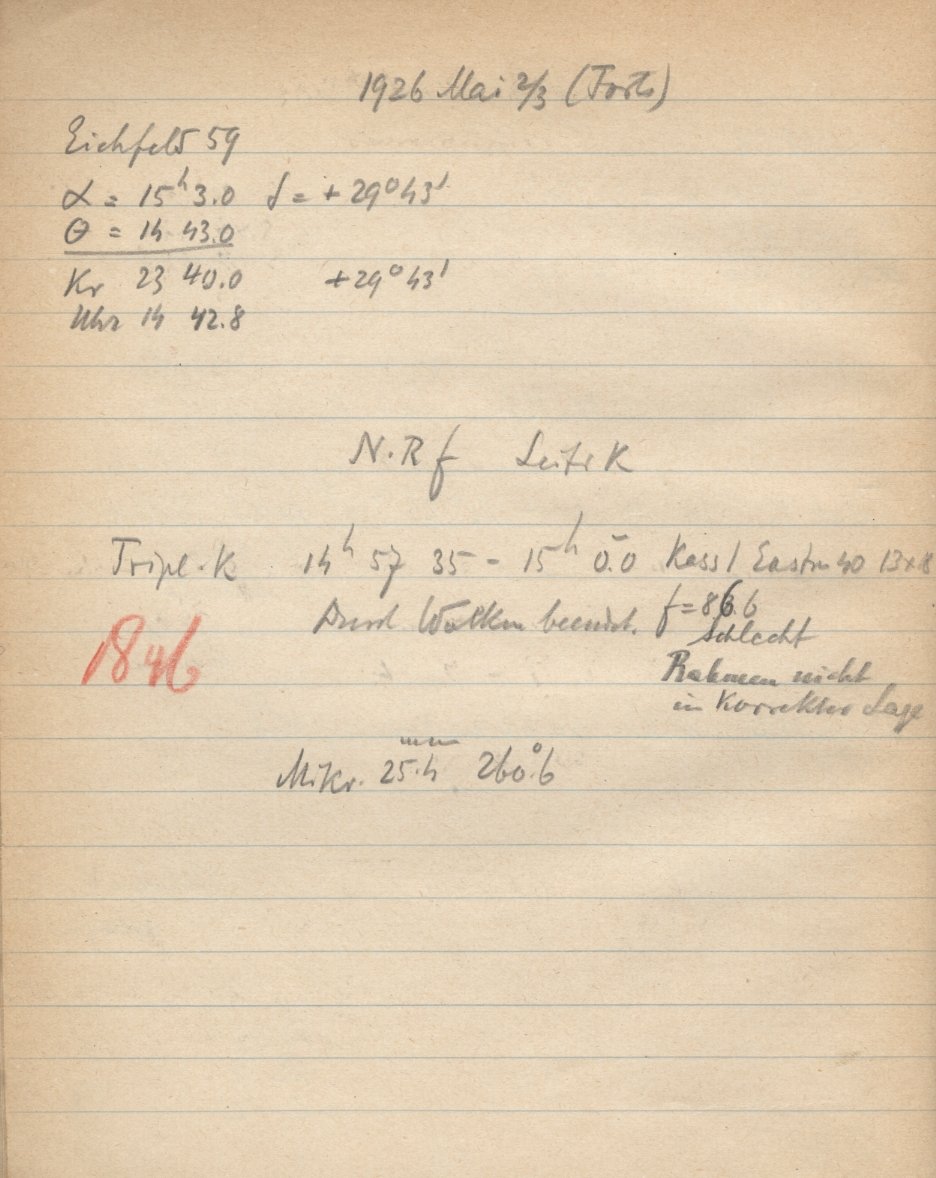 1926 Mai 2/3 (Forts)
Eichfeld 59
α = 15ʰ 3.0 δ = + 29° 43'
θ = 14 43.0
Kr 23 40.0 +29° 43'
Uhr 14 42.8
N.R f Leitr K
Tripl.K 14ʰ 57 35 - 15ʰ 0.0 Kass 1 Eastm 40 13x8
Durch Wolken beendet. f = 86.6
schlecht
1846
Rahmen nicht
in korrekter Lage
mm
Mikr. 25.4 260°.6